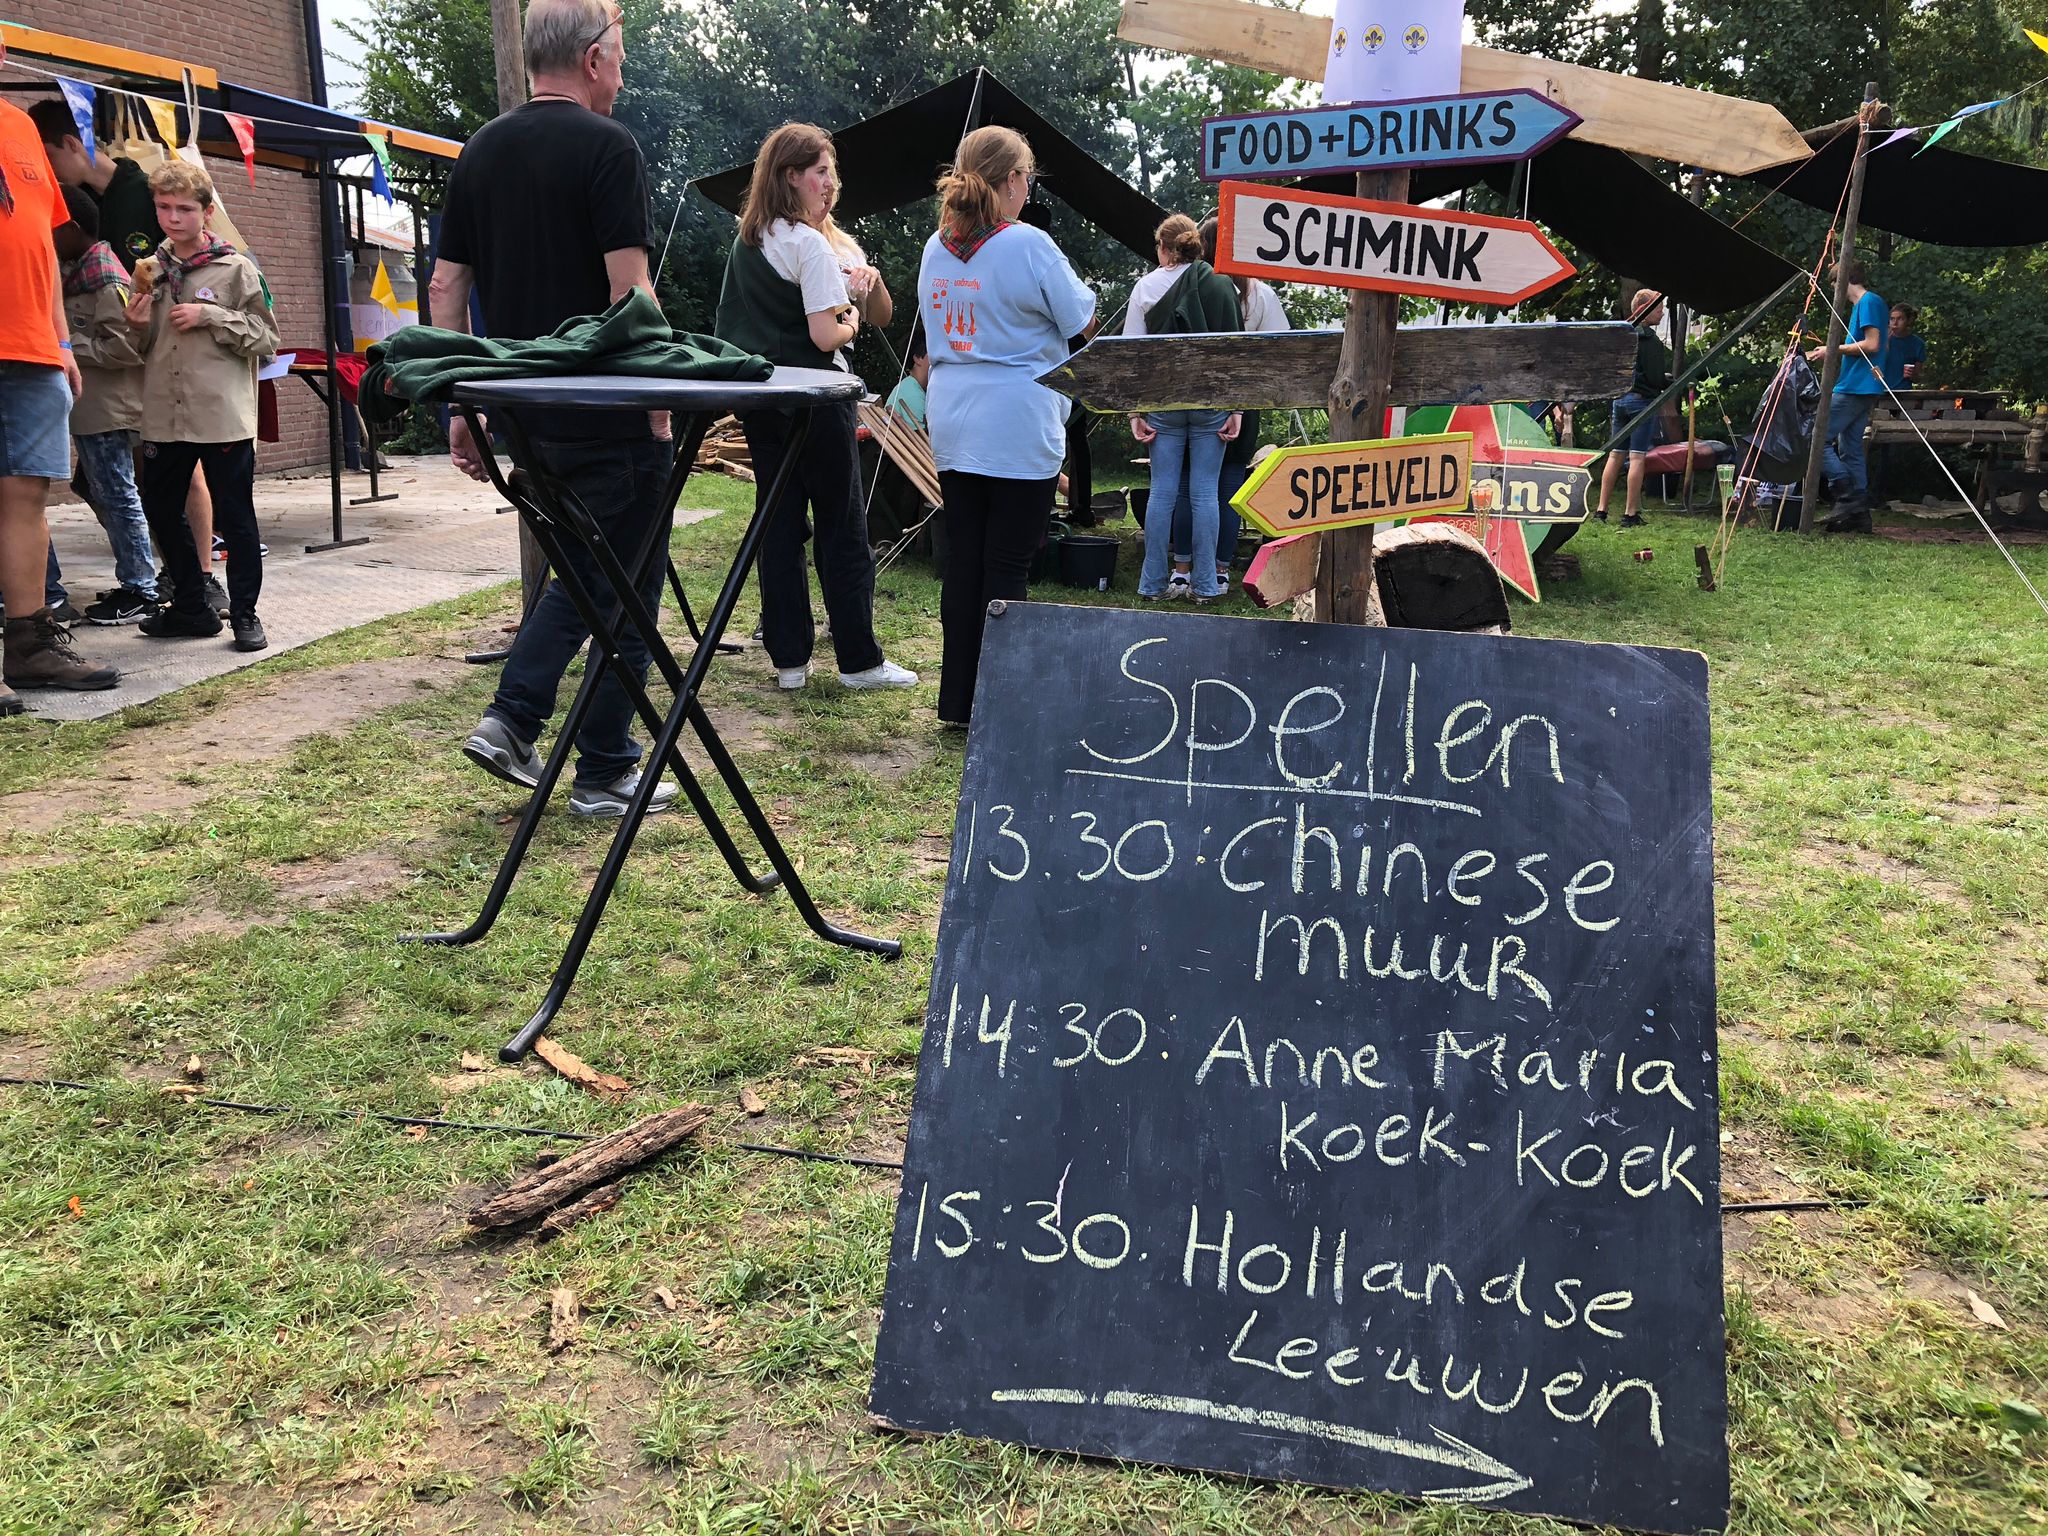 FOOD+DRINKS
SCHMINK
SPEELVELD
MARK
ans
Nijmegen - 2022
Spellen
13:30: Chinese
muur
14:30: Anne Maria
Koek-Koek
15:30: Hollandse
Leeuwen